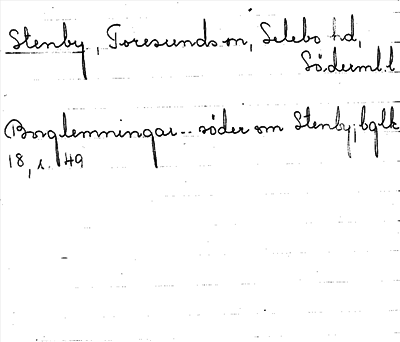 Stenby, Toresunds sn, Selebo hd,
Söderml.l
Borglemningar.. söder om Stenby, bglk
18, s. 49